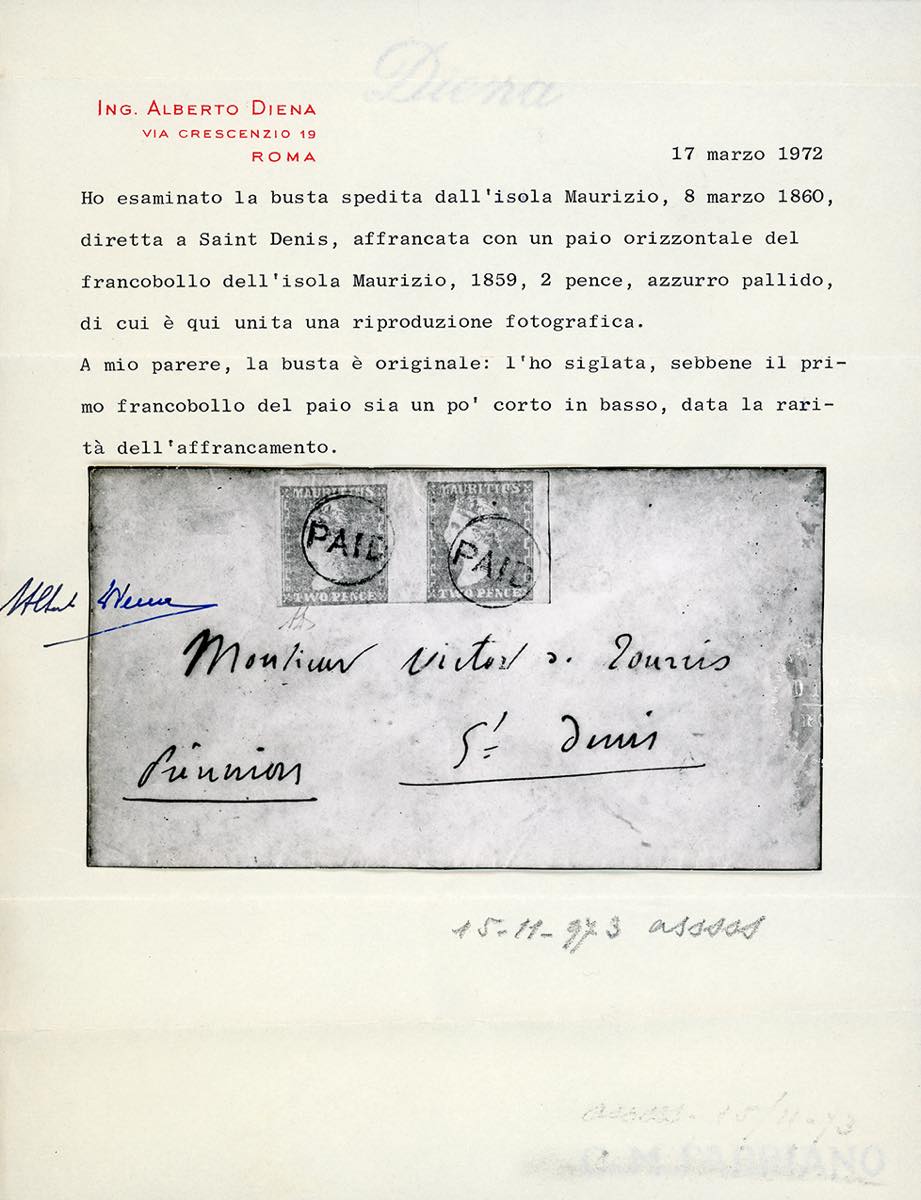 Diena
ING. ALBERTO DIENA
VIA CRESCENZIO 19
ROMA
17 marzo 1972
Ho esaminato la busta spedita dall'isola Maurizio, 8 marzo 1860,
diretta a Saint Denis, affrancata con un paio orizzontale del
francobollo dell'isola Maurizio, 1859, 2 pence, azzurro pallido,
di cui è qui unita una riproduzione fotografica.
A mio parere, la busta è originale: l'ho siglata, sebbene il pri-
mo francobollo del paio sia un po' corto in basso, data la rari-
tà dell'affrancamento.
MAURITIUS MAURITIUS
PAID PAID
TWO PENCE TWO PENCE
Monsieur Victor
St Denis
Réunion
15-11-973 asssss